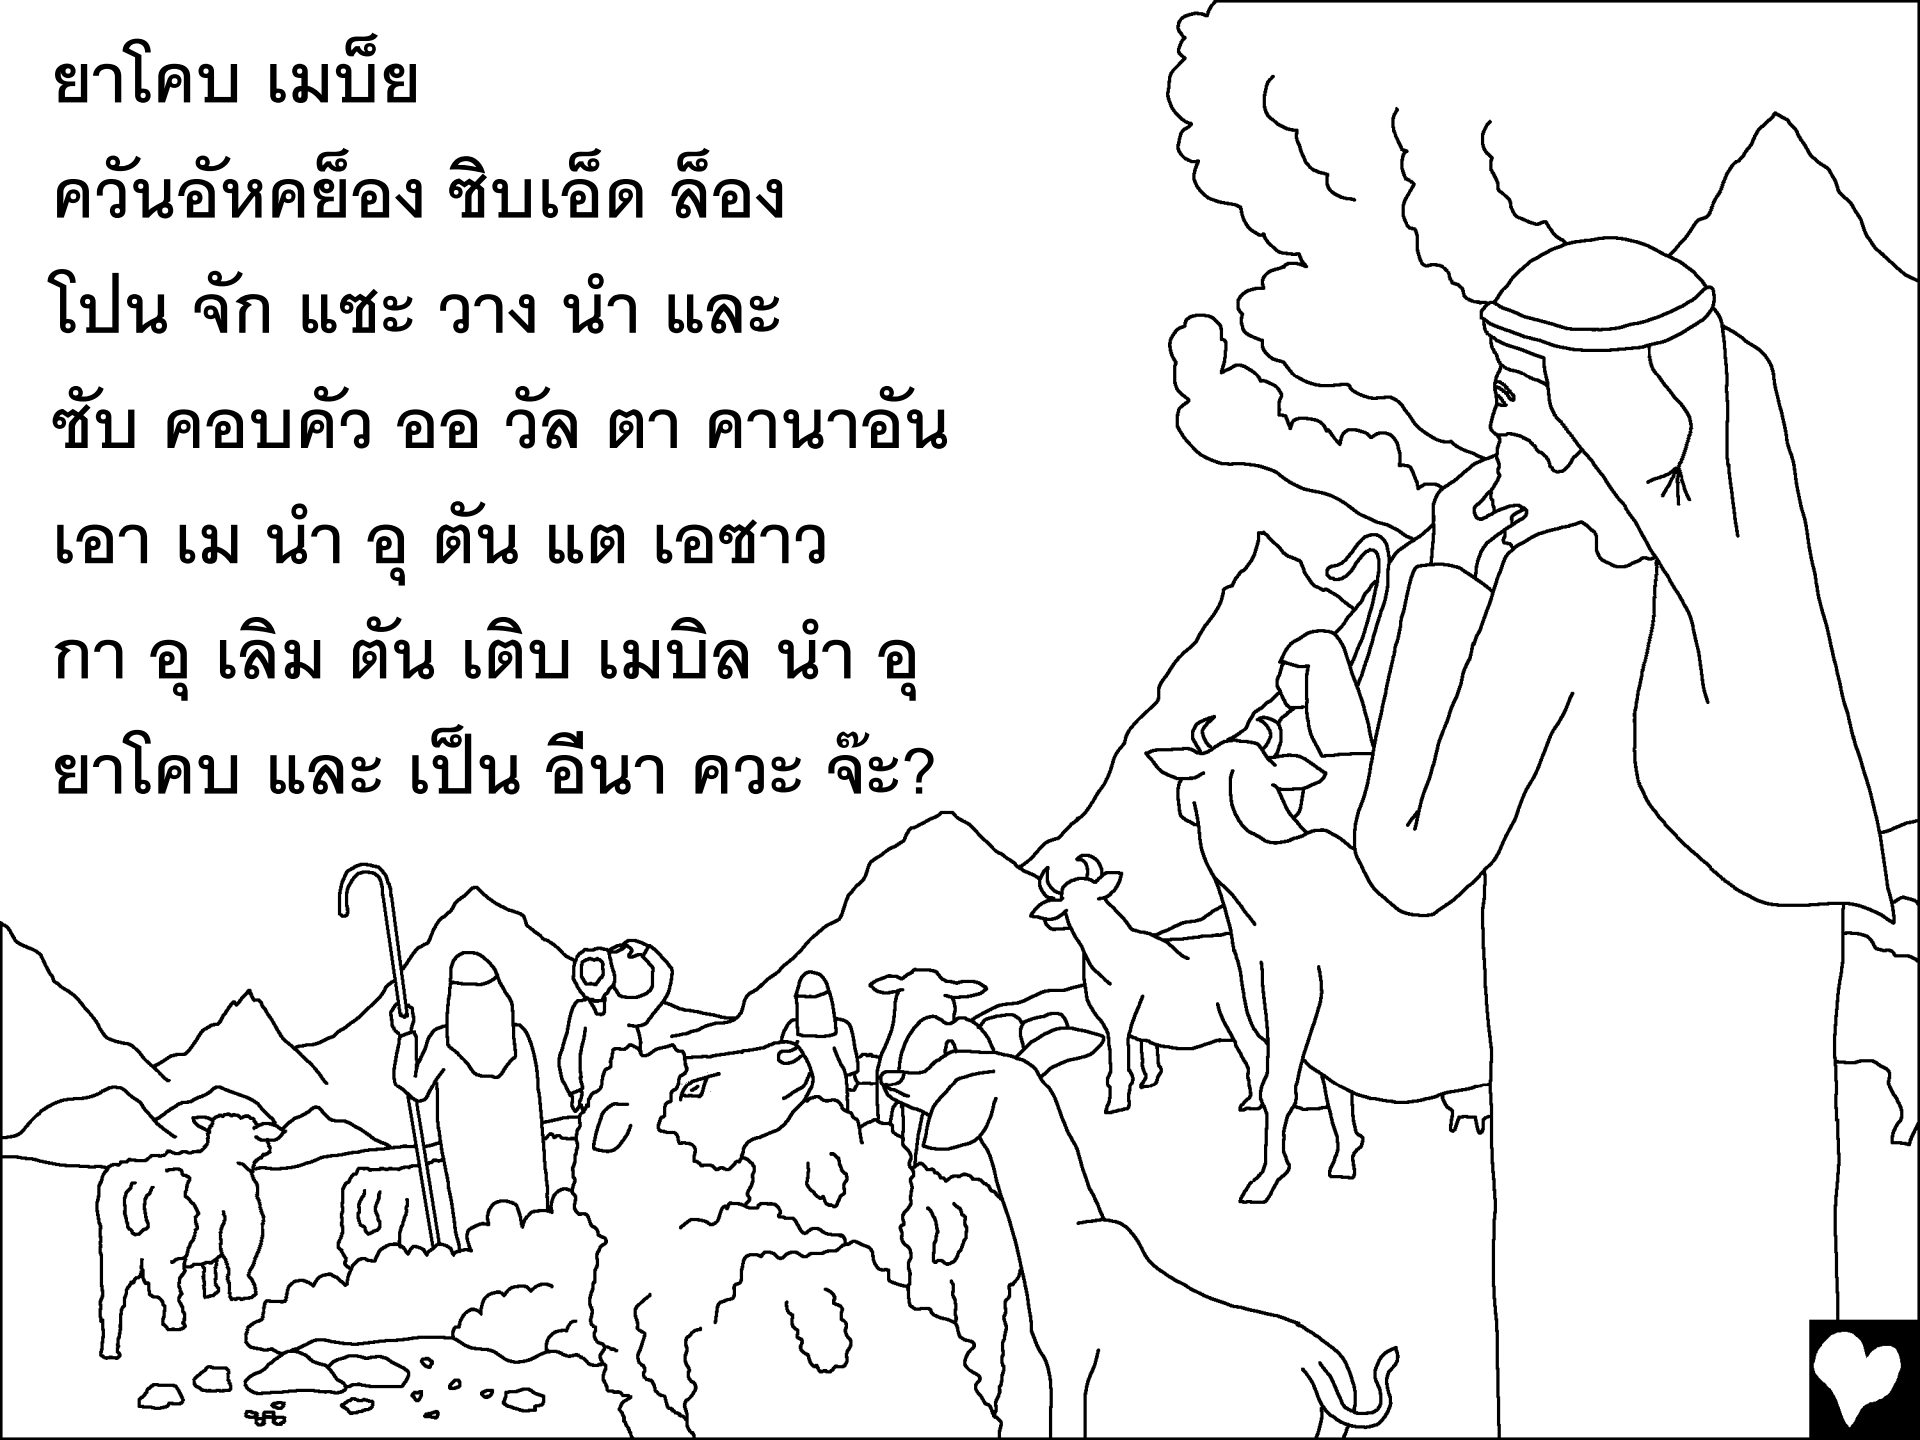 ยาโคบ เมบ็ย
ควันอัหคย็อง ซิบเอ็ด ล็อง
โปน จัก แซะ วาง นำ และ
ซับ คอบคัว ออ วัล ตา คานาอัน
เอา เม นำ อุ ตัน แต เอซาว
กา อุ เลิม ตัน เติบ เมบิล นำ อุ
ยาโคบ และ เป็น อีนา ควะ จ๊ะ?